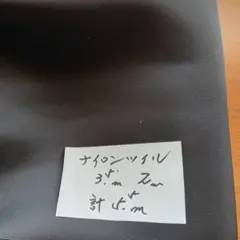 ナイロンツイル
3.5m 2m
計 5.5m